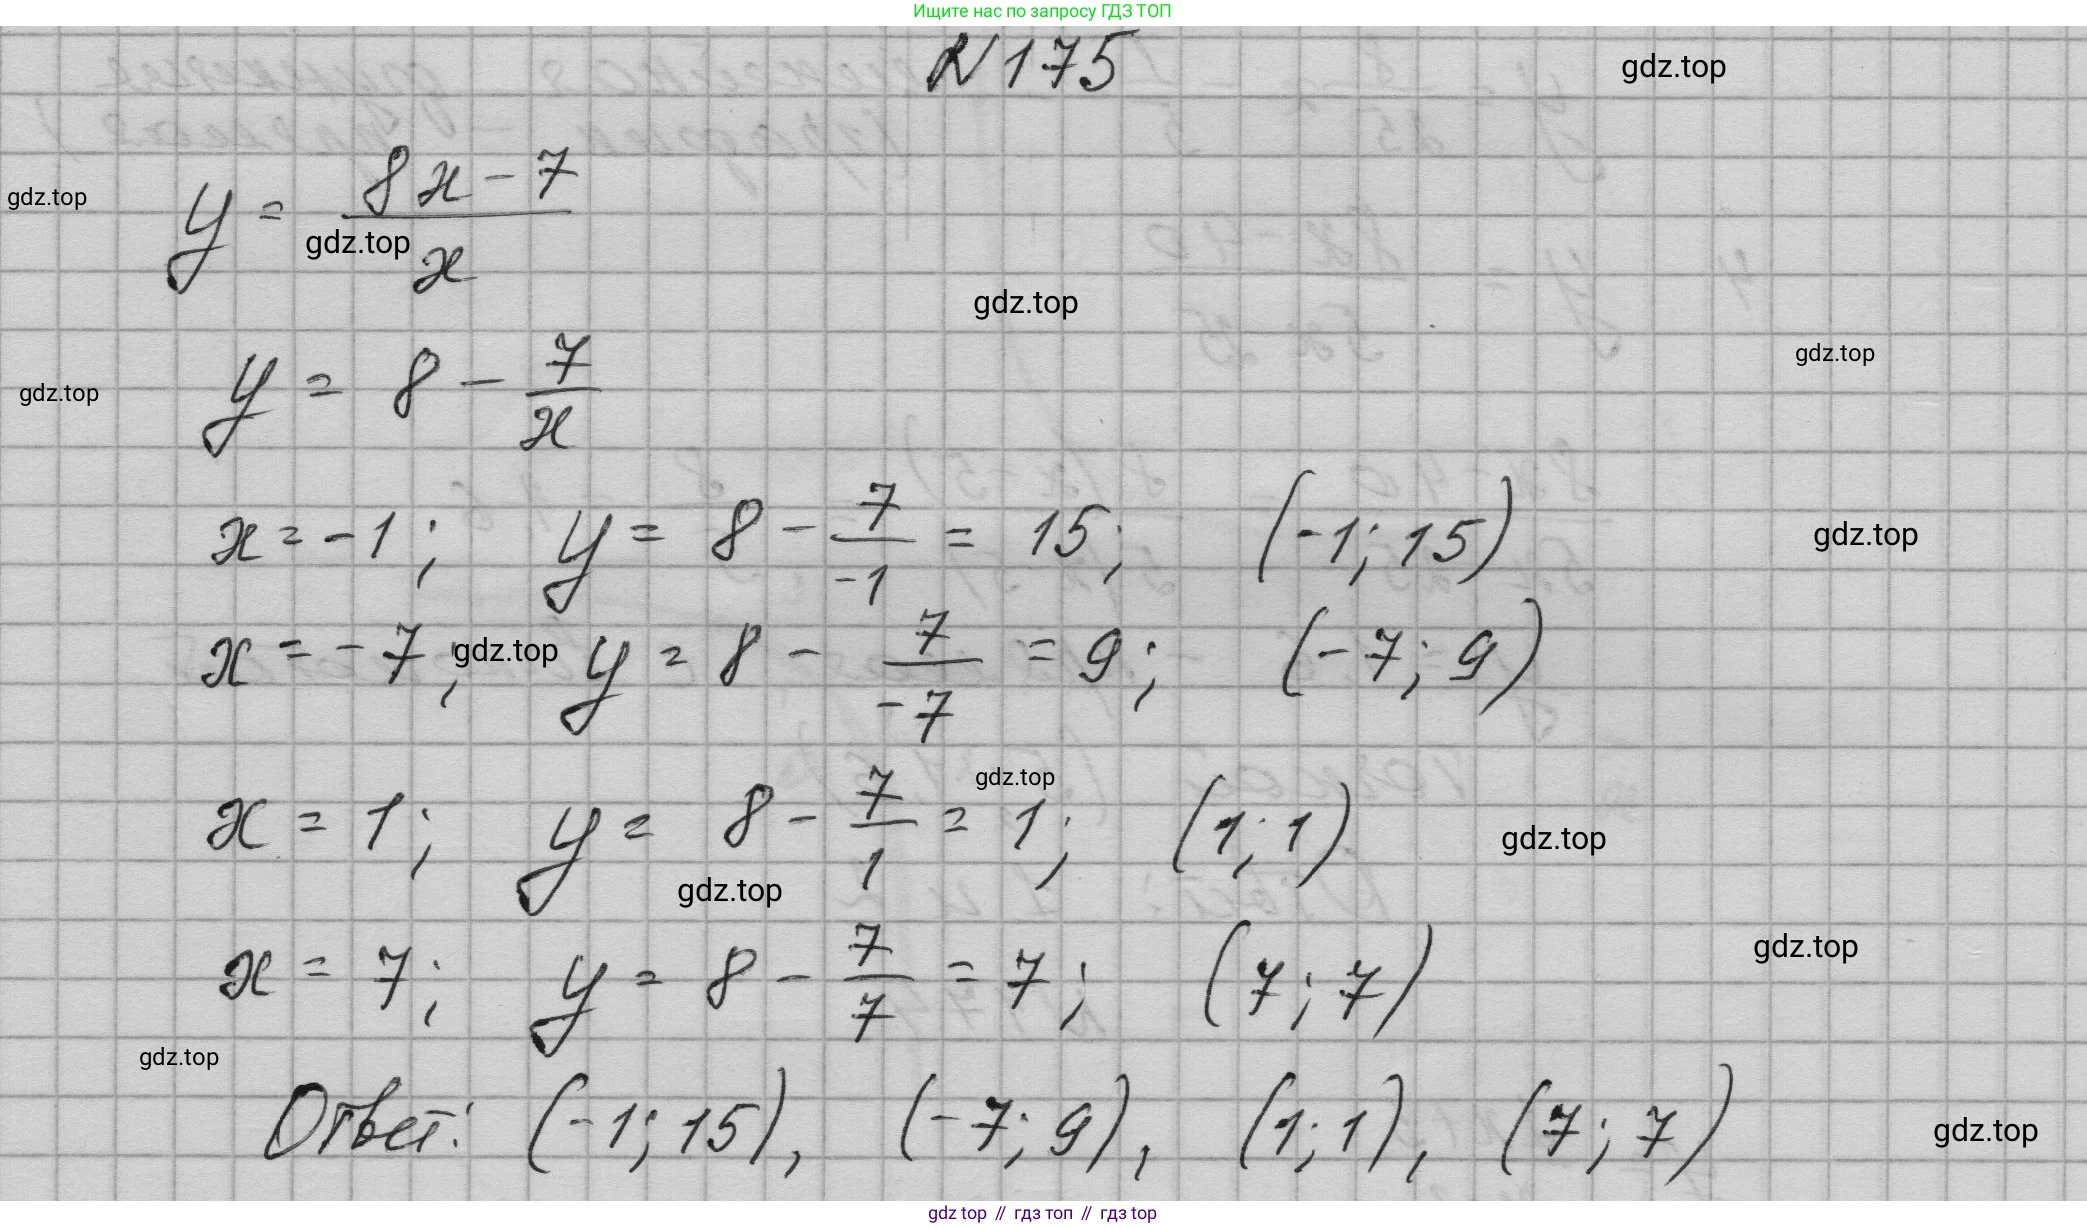 Ищите нас по запросу ГДЗ ТОП
N175
gdz.top
y = (8x - 7)/x
gdz.top
gdz.top
gdz.top
y = 8 - 7/x
gdz.top
gdz.top
x = -1; y = 8 - 7/-1 = 15; (-1; 15)
gdz.top
x = -7; y = 8 - 7/-7 = 9; (-7; 9)
gdz.top
x = 1; y = 8 - 7/1 = 1; (1; 1)
gdz.top
gdz.top
gdz.top
x = 7; y = 8 - 7/7 = 7; (7; 7)
gdz.top
gdz.top
Ответ: (-1; 15), (-7; 9), (1; 1), (7; 7)
gdz.top
gdz top // гдз топ // gdz top